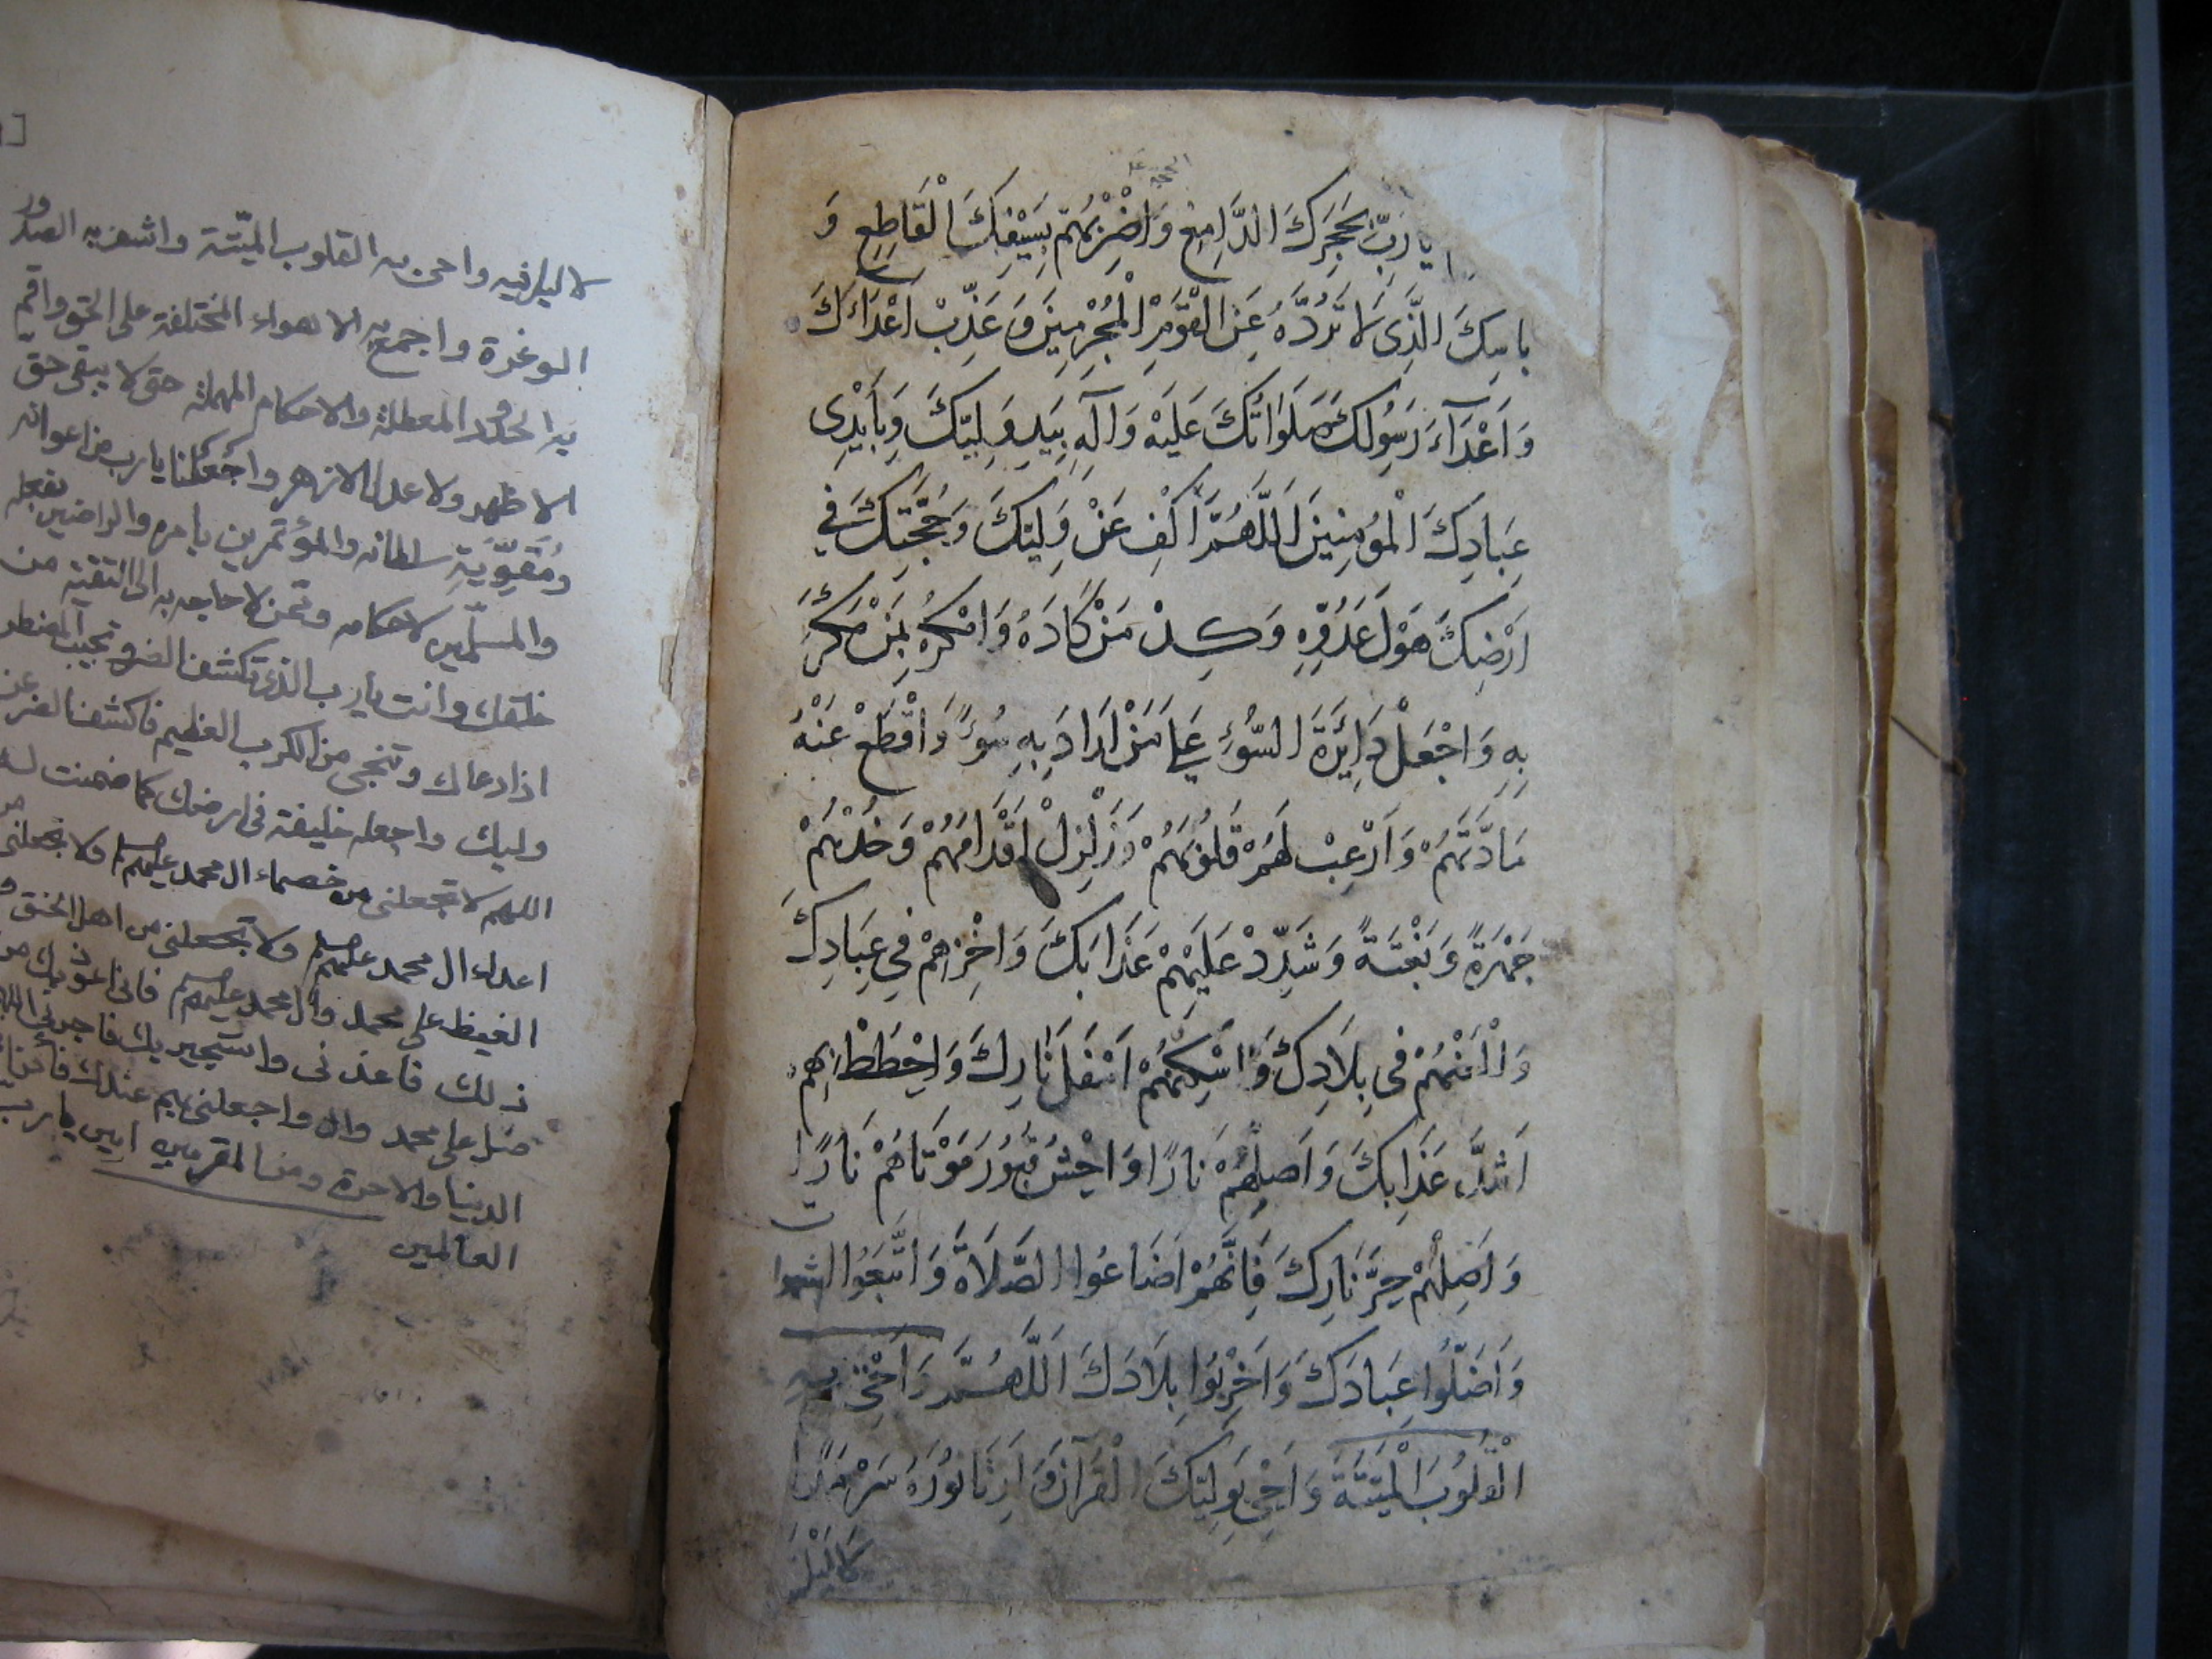 يا رَبِّ بِحَجَرِكَ الدَّامِغِ وَاضْرِبْهُمْ بِسَيْفِكَ الْقَاطِعِ وَ
بِاسِكَ الَّذِى لا تَرُدُّهُ عَنِ الْقَوْمِ الْمُجْرِمِينَ وَعَذِّبْ اَعْدَاءَكَ
وَاَعْدَآءَ رَسُولِكَ صَلَوَاتُكَ عَلَيْهِ وَآلِهِ بِيَدِ وَلِيِّكَ وَبِأَيْدِى
عِبَادِكَ الْمُؤمِنِينَ اَللَّهُمَّ اكْفِ عَنْ وَلِيِّكَ وَحُجَّتِكَ فِي
اَرْضِكَ هَوْلَ عَدُوِّهِ وَكِدْ مَنْ كَادَهُ وَامْكُرْ بِمَنْ مَكَرَ
بِهِ وَاجْعَلْ دَايِرَةَ السُّوْءِ عَلَى مَنْ اَرَادَ بِهِ سُوءً وَاقْطَعْ عَنْهُ
مَادَّتَهُمْ وَاَرْعِبْ لَهُمْ قَلُوبَهُمْ وَزَلْزِلْ اَقْدَامَهُمْ وَخُذْهُمْ
جَهْرَةً وَبَغْتَةً وَشَدِّدْ عَلَيْهِمْ عَذَابَكَ وَاخْزِهِمْ فِي عِبَادِكَ
وَالْعَنْهُمْ فى بِلَادِكَ وَاسْكِنْهُمْ اَسْفَلَ نَارِكَ وَاحِطْ بِهِمْ
اَشَدَّ عَذَابِكَ وَاَصْلِهِمْ نَارًا وَاحْشُ قُبُورَ مَوْتَاهُمْ نَارًا
وَاَصْلِهِمْ حَرَّ نَارِكَ فَاِنَّهُمْ اَضَاعُوا الصَّلَاةَ وَاتَّبَعُوا الشهوات
وَاَضَلُّوا عِبَادَكَ وَاَخْرِبُوا بِلَادَكَ اَللَّهُمَّ وَاَحْيِ به
الْقُلُوبَ الْمَيِّتَةَ وَاَحْيِ بِوَلِيِّكَ الْقُرْآنَ وَاَرِنَا نُورَهُ سَرْمَدًا
لا ليل فيه واحى به القلوب الميّتة واشف به الصدور
الوغرة واجمع به الاهواء المختلفة على الحق واقم
به الحدود المعطلة والاحكام المهملة حتى لا يبقى حق
الا ظهر ولا عدل الا زهر واجعلنا يا رب من اعوانه
ومقوّية سلطانه والمؤتمرين بامره والراضين بفعله
والمسلّمين لاحكامه وممن لا حاجة به الى التقية من
خلقك وانت يا رب الذى تكشف الضر وتجيب المضطر
اذا دعاك وتنجى من الكرب العظيم فاكشف الضر عن
وليك واجعله خليفة فى ارضك كما ضمنت له
اللهم لا تجعلنى من خصماء ال محمد عليهم السلم ولا تجعلنى من
اعداء ال محمد عليهم السلم ولا تجعلنى من اهل الحنق و
الغيظ على محمد وال محمد عليهم السلم فانى اعوذ بك من
ذلك فاعذنى واستجير بك فاجرنى اللهم
صل على محمد وال واجعلنى بهم عندك فائزا
الدنيا والاخرة ومن المقربين امين يا رب
العالمين